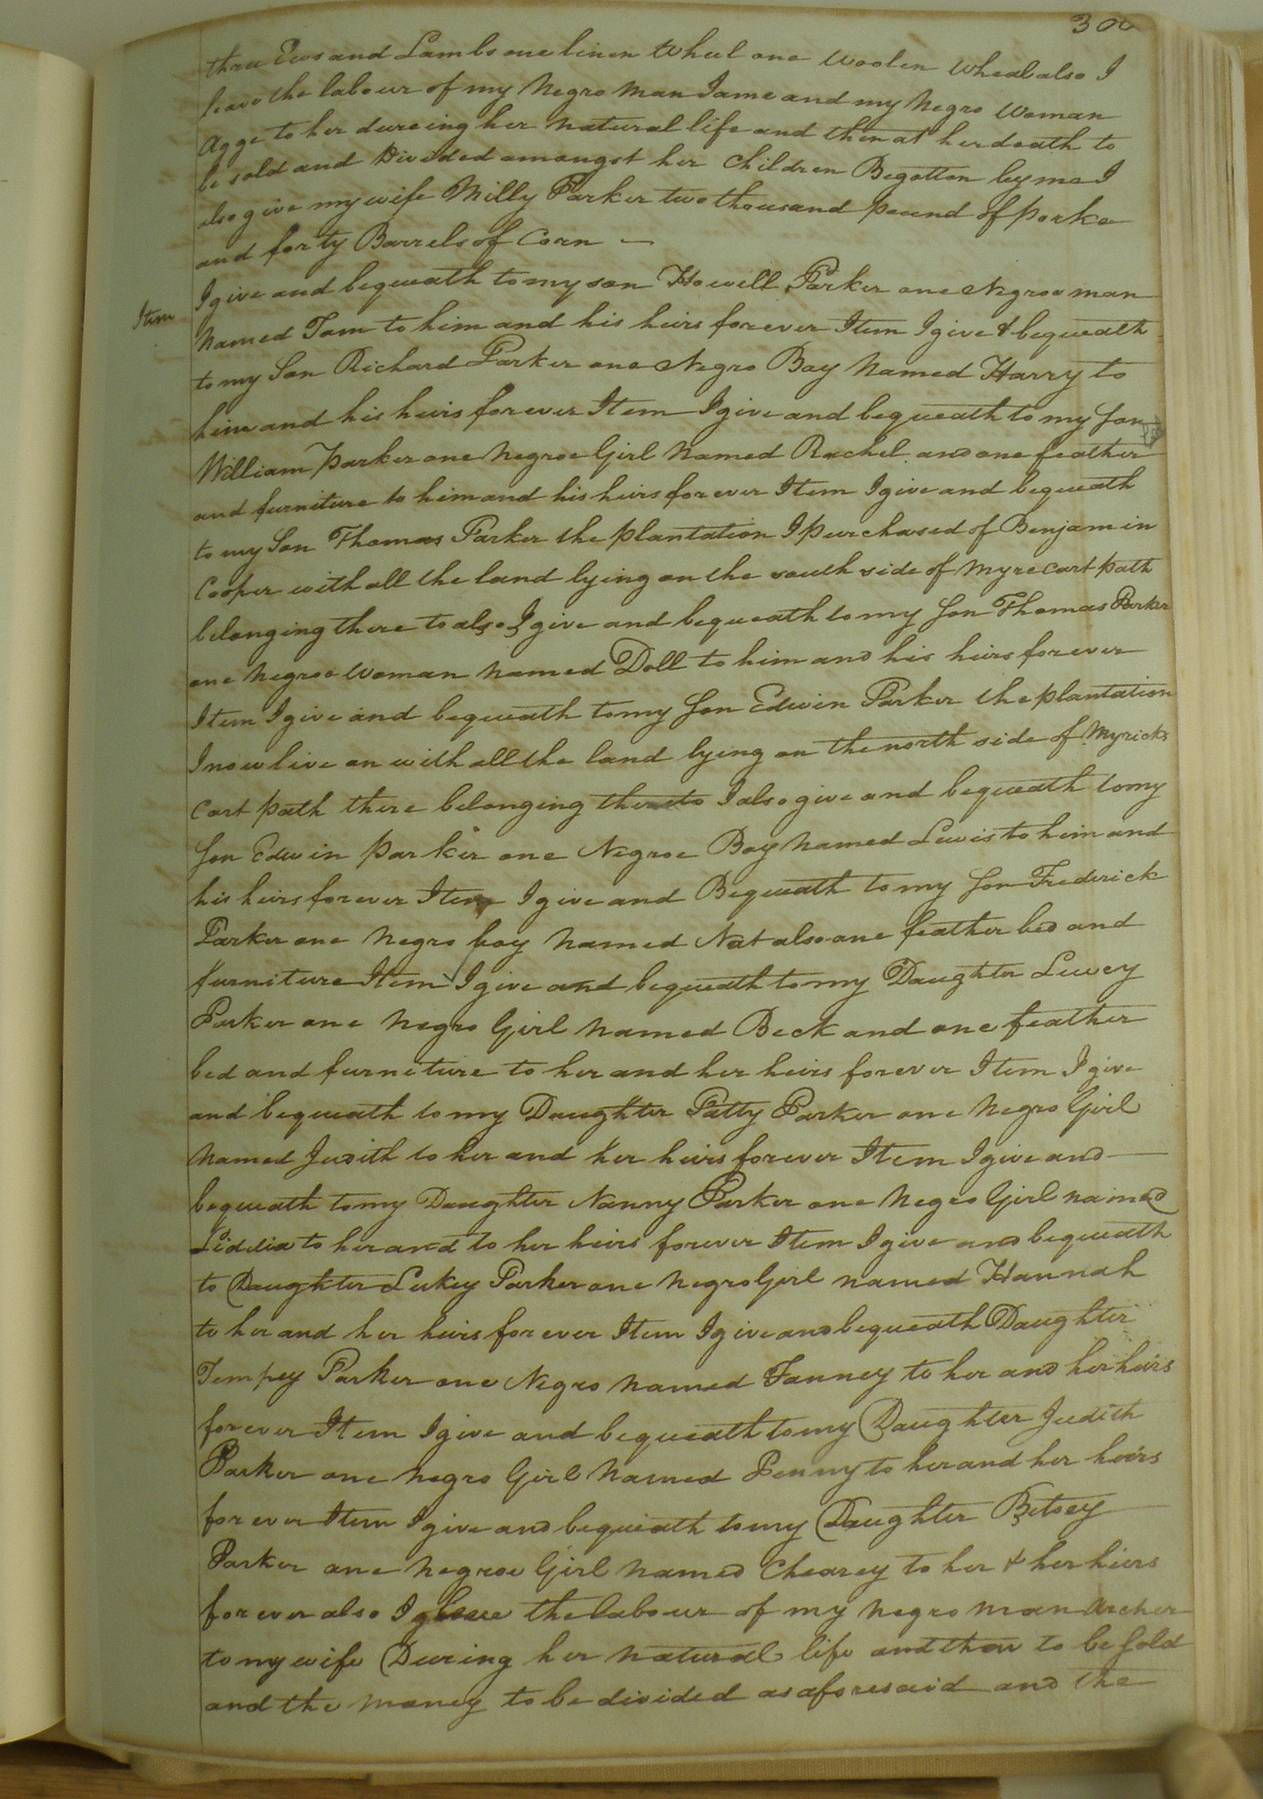 300
three Ews and Lambs one linen Wheel one Woolen Wheal also I
leave the labour of my Negro Man Jame and my Negro Woman
Agge to her dureing her natural life and then at her death to
be sold and Divided amongst her Children Begotton by me I
also give my wife Milly Parker two thousand pound of porke
and forty Barrels of Corn —
Item I give and bequeath to my son Howell Parker one Negroe man
Named Tom to him and his heirs forever Item I give & bequeath
to my Son Richard Parker one Negro Boy Named Harry to
him and his heirs forever Item I give and bequeath to my Son
William Parker one Negroe Girl Named Rachel and one feather
and furniture to him and his heirs forever Item I give and bequeath
to my Son Thomas Parker the plantation I purchased of Benjamin
Cooper with all the land lying on the south side of Myre Cart path
belonging there to also I give and bequeath to my Son Thomas Parker
one Negroe Woman named Doll to him and his heirs forever
Item I give and bequeath to my Son Edwin Parker the plantation
I now live on with all the land lying on the north side of Myricks
Cart path there belonging thereto I also give and bequeath to my
Son Edwin Parker one Negroe Boy Named Lewis to him and
his heirs forever Item I give and Bequeath to my Son Frederick
Parker one Negro boy Named Nat also one feather bed and
furniture Item I give and bequeath to my Daughter Lucey
Parker one Negro Girl Named Beck and one feather
bed and furneture to her and her heirs forever Item I give
and bequeath to my Daughter Patty Parker one Negro Girl
Named Judith to her and her heirs forever Item I give and
bequeath to my Daughter Nanny Parker one Negro Girl named
Liddia to her and to her heirs forever Item I give and bequeath
to Daughter Lukey Parker one Negro Girl named Hannah
to her and her heirs forever Item I give and bequeath Daughter
Tempey Parker one Negro Named Fanney to her and her heirs
forever Item I give and bequeath to my Daughter Judith
Parker one Negro Girl Named Penny to her and her heirs
forever Item I give and bequeath to my Daughter Betsey
Parker one Negroe Girl Named Chearey to her & her heirs
forever also I leave the labour of my Negro man Archer
to my wife During her natural life and then to be Sold
and the money to be divided as aforesaid and the